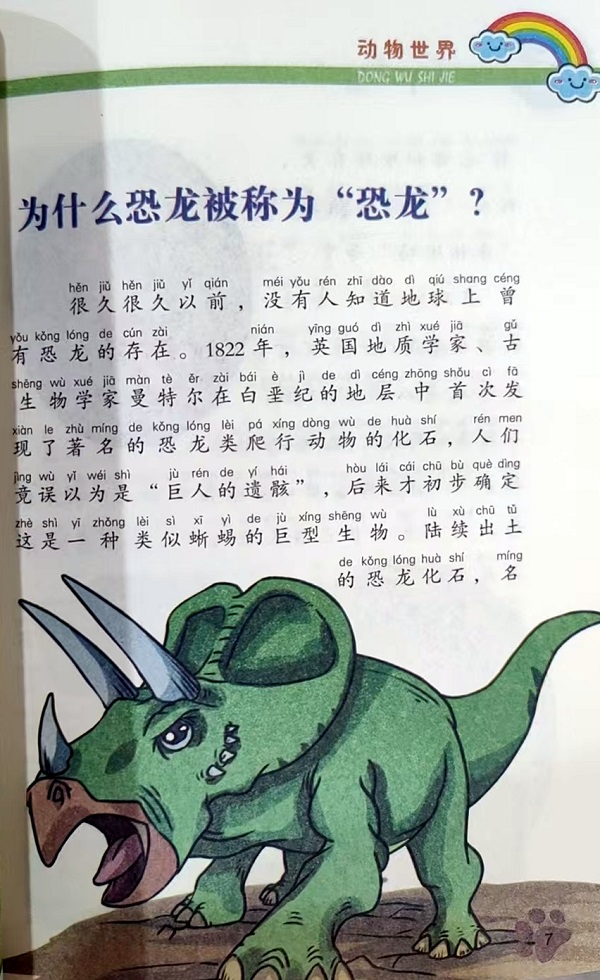 动物世界
DONG WU SHI JIE
为什么恐龙被称为“恐龙”？
hěn jiǔ hěn jiǔ yǐ qián méi yǒu rén zhī dào dì qiú shang céng
很久很久以前，没有人知道地球上曾
yǒu kǒng lóng de cún zài nián yīng guó dì zhì xué jiā gǔ
有恐龙的存在。1822年，英国地质学家、古
shēng wù xué jiā màn tè ěr zài bái è jì de dì céng zhōng shǒu cì fā
生物学家曼特尔在白垩纪的地层中首次发
xiàn le zhù míng de kǒng lóng lèi pá xíng dòng wù de huà shí rén men
现了著名的恐龙类爬行动物的化石，人们
jìng wù yǐ wéi shì jù rén de yí hái hòu lái cái chū bù què dìng
竟误以为是“巨人的遗骸”，后来才初步确定
zhè shì yī zhǒng lèi sì xī yì de jù xíng shēng wù lù xù chū tǔ
这是一种类似蜥蜴的巨型生物。陆续出土
de kǒng lóng huà shí míng
的恐龙化石，名
7